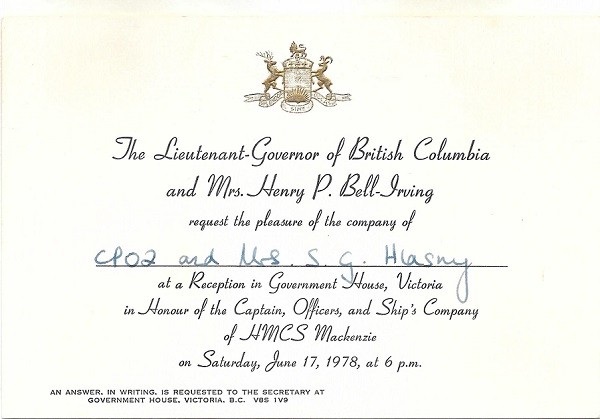 The Lieutenant-Governor of British Columbia
and Mrs. Henry P. Bell-Irving
request the pleasure of the company of
CPO2 and Mrs. S. G. Hlasny
at a Reception in Government House, Victoria
in Honour of the Captain, Officers, and Ship's Company
of HMCS Mackenzie
on Saturday, June 17, 1978, at 6 p.m.
AN ANSWER, IN WRITING, IS REQUESTED TO THE SECRETARY AT
GOVERNMENT HOUSE, VICTORIA, B.C. V8S 1V9